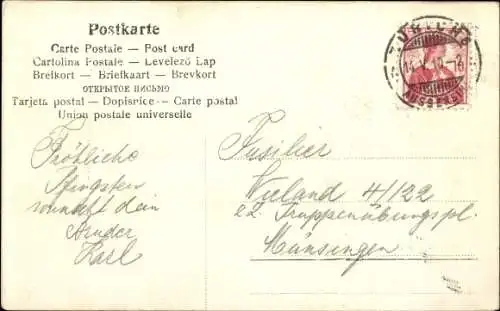 Postkarte
Carte Postale — Post card
Cartolina Postale — Levelező Lap
Brefkort — Briefkaart — Brevkort
ОТКРЫТОЕ ПИСЬМО
Tarjeta postal — Dopisnice — Carte postal
Union postale universelle
Fröhliche
Pfingsten
wünscht dein
Bruder
Karl
Fusilier
Wieland 4/122
zZ. Truppenübungspl.
Münsingen
ZÜRICH 6
14.V.10.-12